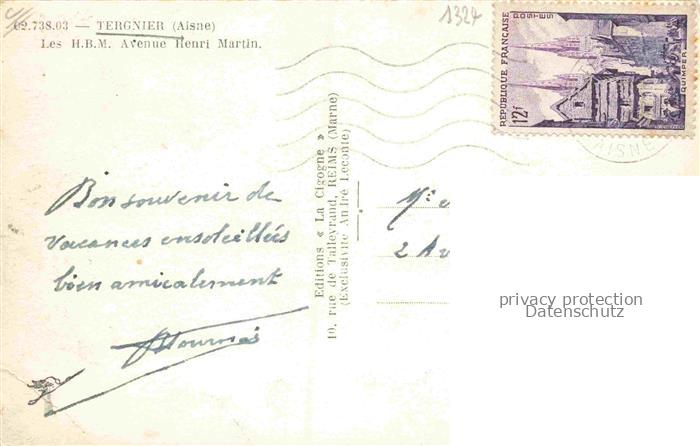 02.738.03 — TERGNIER (Aisne)
Les H.B.M. Avenue Henri Martin.
1327
RÉPUBLIQUE FRANÇAISE
POSTES
12f
QUIMPER
AISNE
Bon souvenir de
vacances ensoleillées
bien amicalement
Editions « La Cigogne »
10, rue de Talleyrand, REIMS (Marne)
(Exclusivité André Leconte)
2 Av
privacy protection
Datenschutz